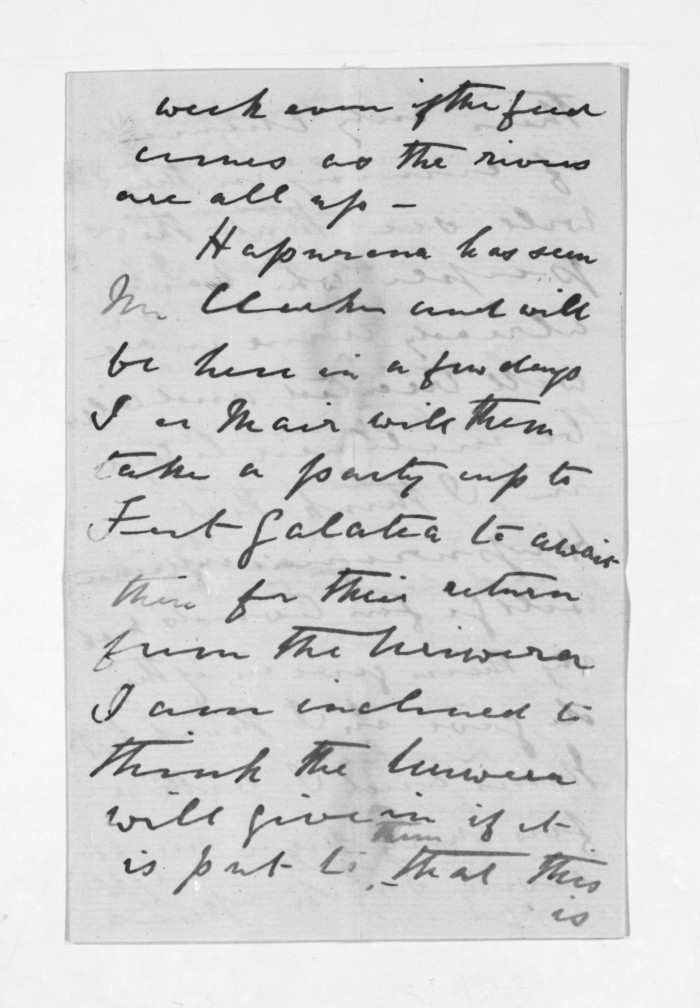 week even if the feed
comes as the rivers
are all up –
Hapurona has seen
Mr Clarke and will
be here in a few days
I or Mair will then
take a party up to
Fort Galatea to await
there for their return
from the Uriwera
I am inclined to
think the Uriwera
will give in if it
is put to them that this
is